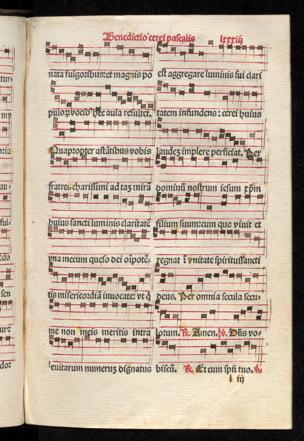 Benedictio cerei pascalis lxxxiij
nata fulgoribus: et magnis po
pulorum vocibus hec aula resultet.
Quapropter astātibus vobis
fratres charissimi ad tā mirā
huius sancti luminis claritatē
vna mecum queso dei oīpotētis
tis misericordiā inuocate: vt q
me non meis meritis intra
leuitarum numerum dignatus
est aggregare luminis sui clari
tatem infundens: cerei huius
laudes implere perficiat. Per
dominū nostrum iesum xp̄m
filium suum: cum quo viuit et
regnat ī vnitate spiritussancti
deus. Per omnia secula secu
lorum. ℟. Amen. ℣. Dn̄s vo
biscū. ℟. Et cum spū tuo. ℣.
l iij